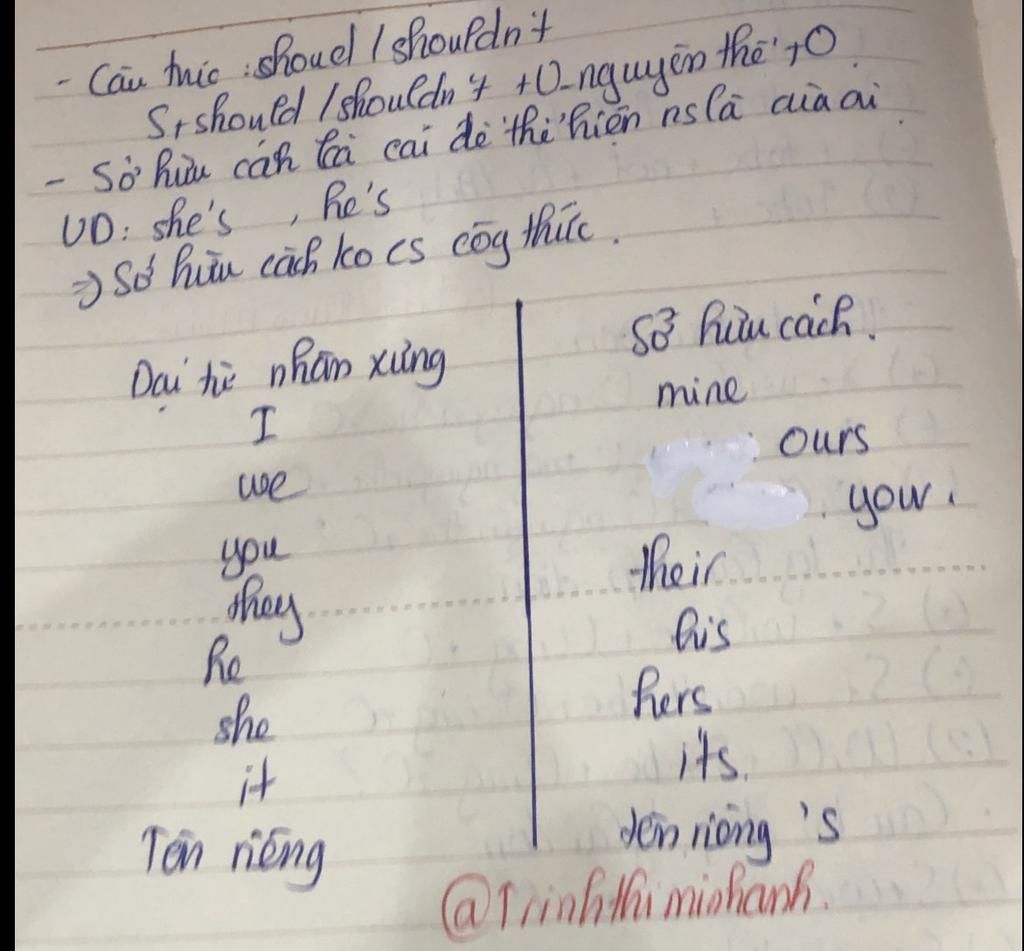 - Câu trúc : shoud / shouldn't
S + should / shouldn't + V-nguyên thể + O.
- Sở hữu cách là cái để thể hiện ns là của ai.
VD: she's , he's
=> Sở hữu cách ko cs côg thức.
Đại từ nhân xưng
I
we
you
they
he
she
it
Tên riêng
Sở hữu cách.
mine
ours
your.
their
his
hers
its.
tên riêng 's
@Trinhthiminhanh.